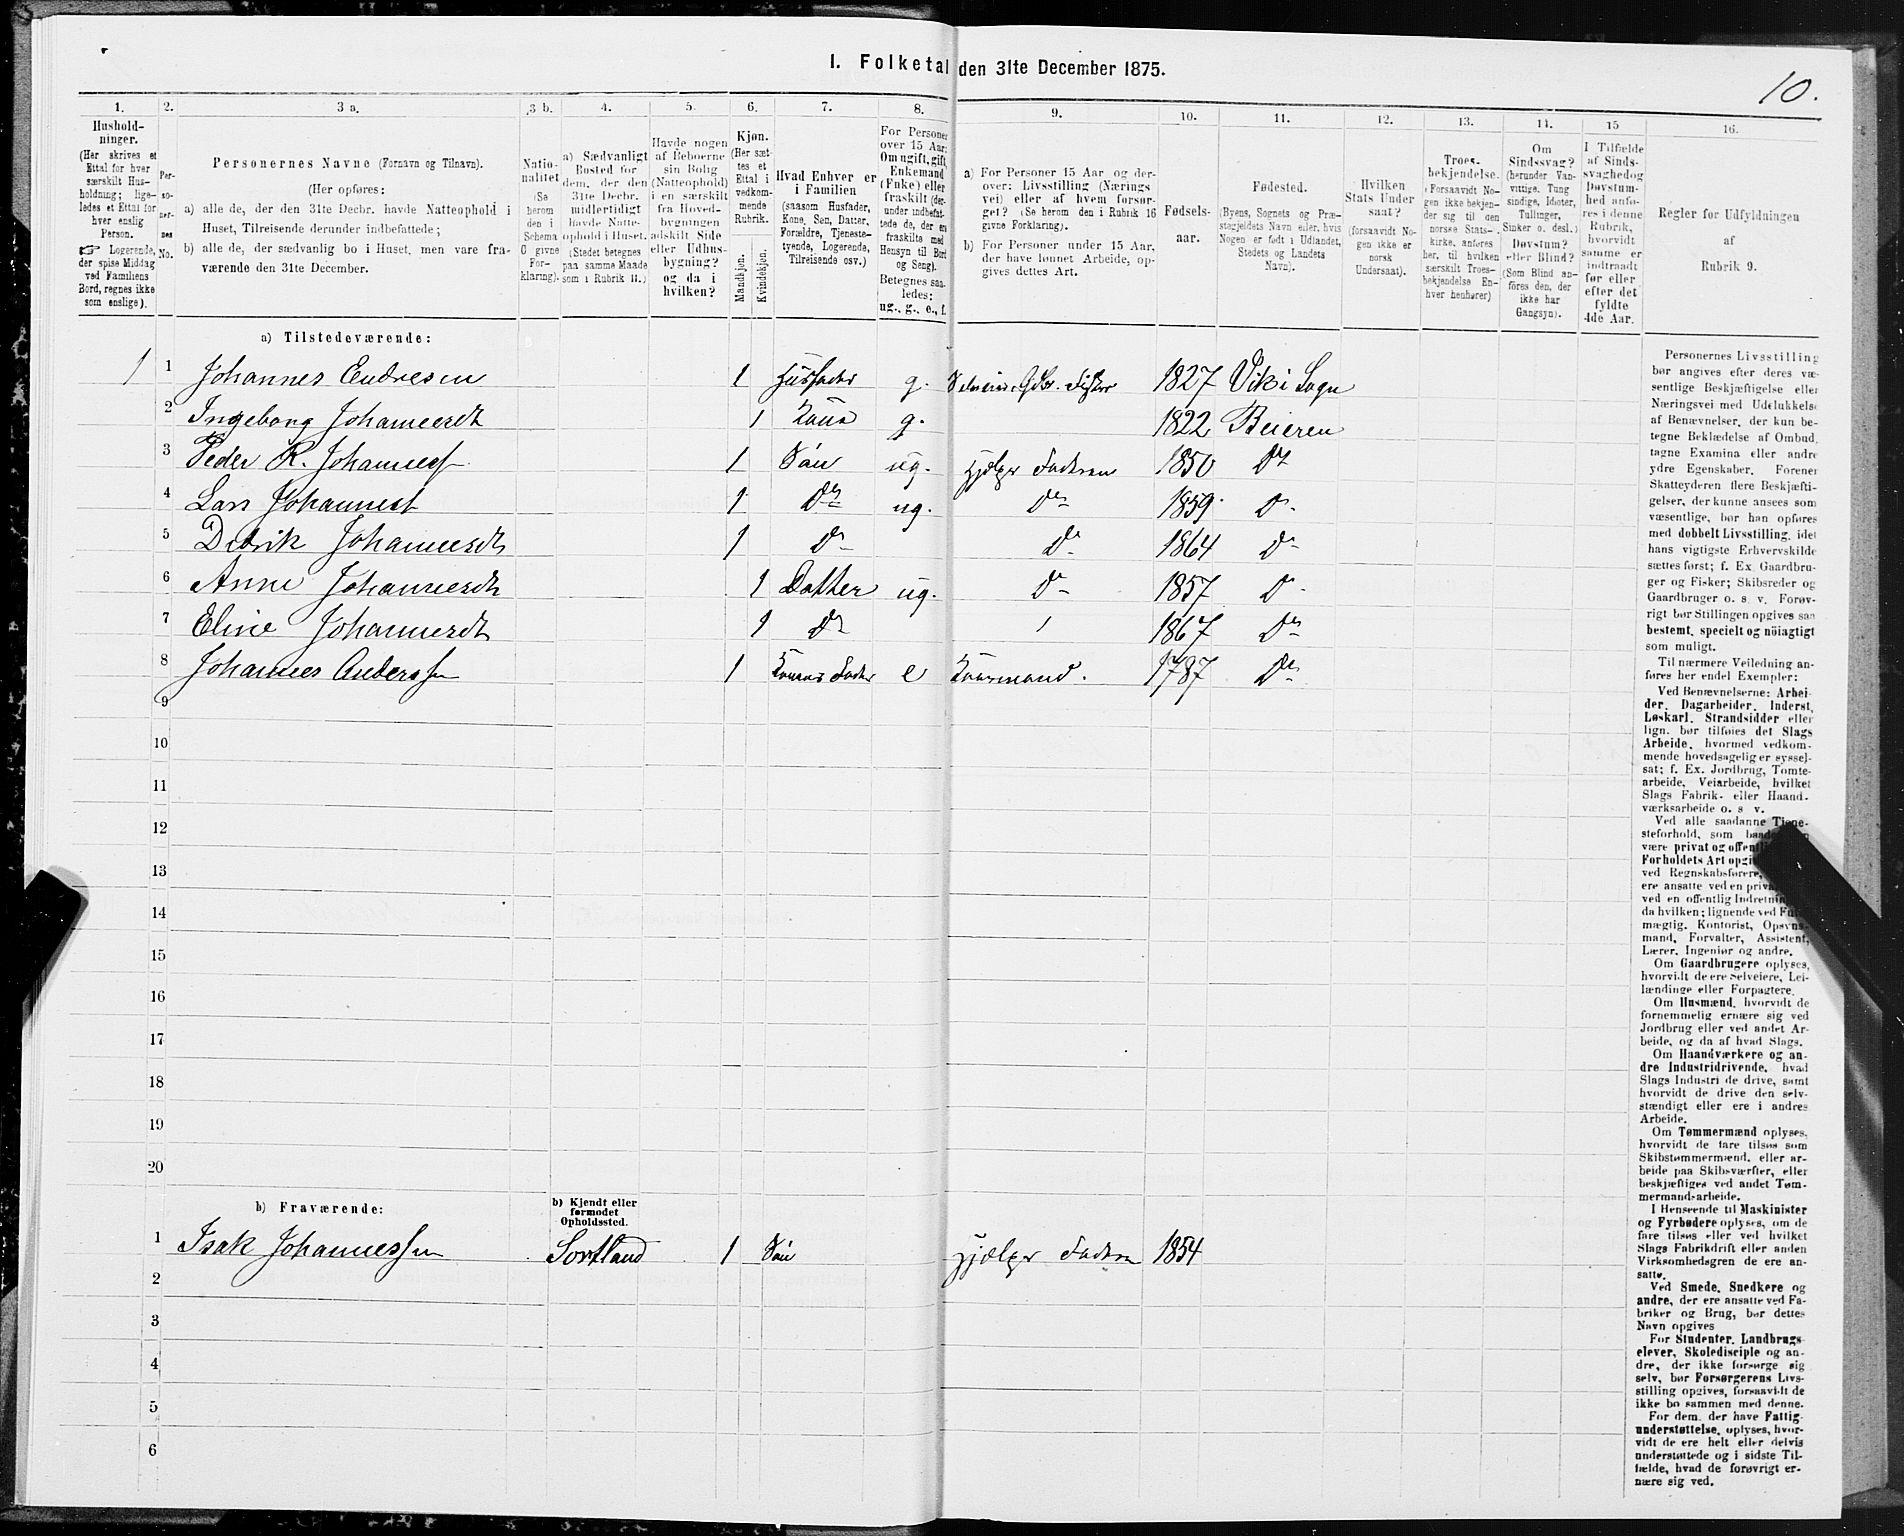 I. Folketal den 31te December 1875.
10.
1. 2. 3 a. 3 b. 4. 5. 6. 7. 8. 9. 10. 11. 12. 13. 14. 15 16.
Hushold-
ninger.
(Her skrives et
Ettal for hver
særskilt Hus-
holdning; lige-
ledes et Ettal for
hver enslig
Person.
☞ Logerende,
der spise Middag
ved Familiens
Bord, regnes ikke
som enslige).
Per-
so-
ner-
nes
No.
Personernes Navne (Fornavn og Tilnavn).
(Her opføres:
a) alle de, der den 31te Decbr. havde Natteophold i
Huset, Tilreisende derunder indbefattede;
b) alle de, der sædvanlig bo i Huset, men vare fra-
værende den 31te December.
Natio-
nalitet
(Se
herom
den i
Schema
6 givne
For-
klaring).
a) Sædvanligt
Bosted for
dem, der den
31te Decbr.
midlertidigt
havde Natte-
ophold i Huset.
(Stedet betegnes
paa samme Maade
som i Rubrik 11.)
Havde nogen
af Beboerne
sin Bolig
(Natteophold)
i en særskilt
fra Hoved-
bygningen
adskilt Side
eller Udhus-
bygning?
og da i
hvilken?
Kjøn.
(Her sæt-
tes et
Ettal i
vedkom-
mende
Rubrik.
Mandkjøn.
Kvindekjøn.
Hvad Enhver er
i Familien
(saasom Husfader,
Kone, Søn, Datter,
Forældre, Tjeneste-
tyende, Logerende,
Tilreisende osv.)
For Personer
over 15 Aar:
Om ugift, gift,
Enkemand
(Enke) eller
fraskilt (der-
under indbefat-
tede de, der ere
fraskilte med
Hensyn til Bord
og Seng).
Betegnes saa-
ledes:
ug., g., e., f.
a) For Personer 15 Aar og der-
over: Livsstilling (Nærings
vei) eller af hvem forsør-
get? (Se herom den i Rubrik 16
givne Forklaring).
b) For Personer under 15 Aar,
der have lønnet Arbeide, op-
gives dettes Art.
Fødsels-
aar.
Fødested.
(Byens, Sognets og Præ-
stegjeldets Navn eller, hvis
Nogen er født i Udlandet,
Stedets og Landets
Navn).
Hvilken
Stats Under
saat?
(forsaavidt No-
gen ikke er
norsk
Undersaat).
Troes-
bekjendelse.
(Forsaavidt No-
gen ikke bekjen-
der sig til den
norske Stats-
kirke, anføres
her, til hvilken
særskilt Troes-
bekjendelse En-
hver henhører)
Om
Sindssvag?
(herunder Van-
vittige, Tung
sindige, Idioter,
Tullinger,
Sinker o. desl.)
Døvstum?
eller Blind?
(Som Blind an-
føres den, der
ikke har
Gangsyn).
I Tilfælde
af Sinds-
svaghed og
Døvstum-
hed anfø-
res i denne
Rubrik,
hvorvidt
samme er
indtraadt
før eller
efter det
fyldte
4de Aar.
Regler for Udfyldningen
af
Rubrik 9.
a) Tilstedeværende:
1 1 Johannes Endresen 1 Husfader g. 1827 Vik i Sogn
2 Ingeborg Johannesdt 1 Kone g. 1822 Beieren
3 Peder R. Johannesn 1 Søn ug. Hjælper Faderen 1850 Do
4 Lars Johannest 1 Do ug. Do 1859 Do
5 Didrik Johannesdt 1 Do Do 1864 Do
6 Anne Johannesdt 1 Datter ug. Do 1857 Do
7 Eline Johannesdt 1 Do 1867 Do
8 Johannes Anderssen 1 Konens Fader e Kaarmand. 1787 Do
9
10
11
12
13
14
15
16
17
18
19
20
b) Fraværende:
b) Kjendt eller
formodet
Opholdssted.
1 Isak Johannessen Sortland 1 Søn Hjælper Faderen 1854
2
3
4
5
6
Personernes Livsstilling
bør angives efter deres væ-
sentlige Beskjæftigelse eller
Næringsvei med Udelukkelse
af Benævnelser, der kun be-
tegne Beklædelse af Ombud,
tagne Examina eller andre
ydre Egenskaber. Forener
Skatteyderen flere Beskjæfti-
gelser, der kunne ansees som
væsentlige, bør han opføres
med dobbelt Livsstilling, idet
hans vigtigste Erhvervskilde
sættes først; f. Ex. Gaardbru-
ger og Fisker; Skibsreder og
Gaardbruger o. s. v. Forøv-
rigt bør Stillingen opgives saa
bestemt, specielt og nöiagtigt
som muligt.
Til nærmere Veiledning an-
føres her endel Exempler:
Ved Benævnelserne: Arbei-
der, Dagarbeider, Inderst,
Løskarl, Strandsidder eller
lign. bør tilføies det Slags
Arbeide, hvormed vedkom-
mende hovedsagelig er syssel-
sat; f. Ex. Jordbrug, Tomte-
arbeide, Veiarbeide, hvilket
Slags Fabrik- eller Haand-
værksarbeide o. s v.
Ved alle saadanne Tjene-
steforhold, som
være privat og
Forholdets Art
ved Regnskabsførere,
ere ansatte ved en
ved en offentlig
da hvilken; lignende ved
mægtig, Kontorist, Opsyns-
mand, Forvalter, Assistent,
Lærer, Ingeniør og andre.
Om Gaardbrugere oplyses,
hvorvidt de ere Selveiere, Lei-
lændinge eller Forpagtere.
Om Husmænd, hvorvidt de
fornemmelig ernære sig ved
Jordbrug eller ved andet Ar-
beide, og da af hvad Slags.
Om Haandværkere og an-
dre Industridrivende, hvad
Slags Industri de drive, samt
hvorvidt de drive den selv-
stændigt eller ere i andres
Arbeide.
Om Tømmermænd oplyses,
hvorvidt de fare tilsøs som
Skibstømmermænd, eller ar-
beide paa Skibsværfter, eller
beskjæftiges ved andet Tøm-
mermandsarbeide.
I Henseende til Maskinister
og Fyrbødere oplyses, om de
fare tilsøs eller ved hvilket
Slags Fabrikdrift eller anden
Virksomhedsgren de ere an-
satte.
Ved Smede, Snedkere og
andre, der ere ansatte ved Fa-
briker og Brug, bør dettes
Navn opgives
For Studenter, Landbrugs-
elever, Skoledisciple og an-
dre, der ikke forsørge sig
selv, bør Forsørgerens Livs-
stilling opgives, forsaavidt de
ikke bo sammen med denne.
For dem, der have Fattig-
understøttelse, oplyses, hvor-
vidt de ere helt eller delvis
understøttede og i sidste Til-
fælde, hvad de forøvrigt er-
nære sig ved.